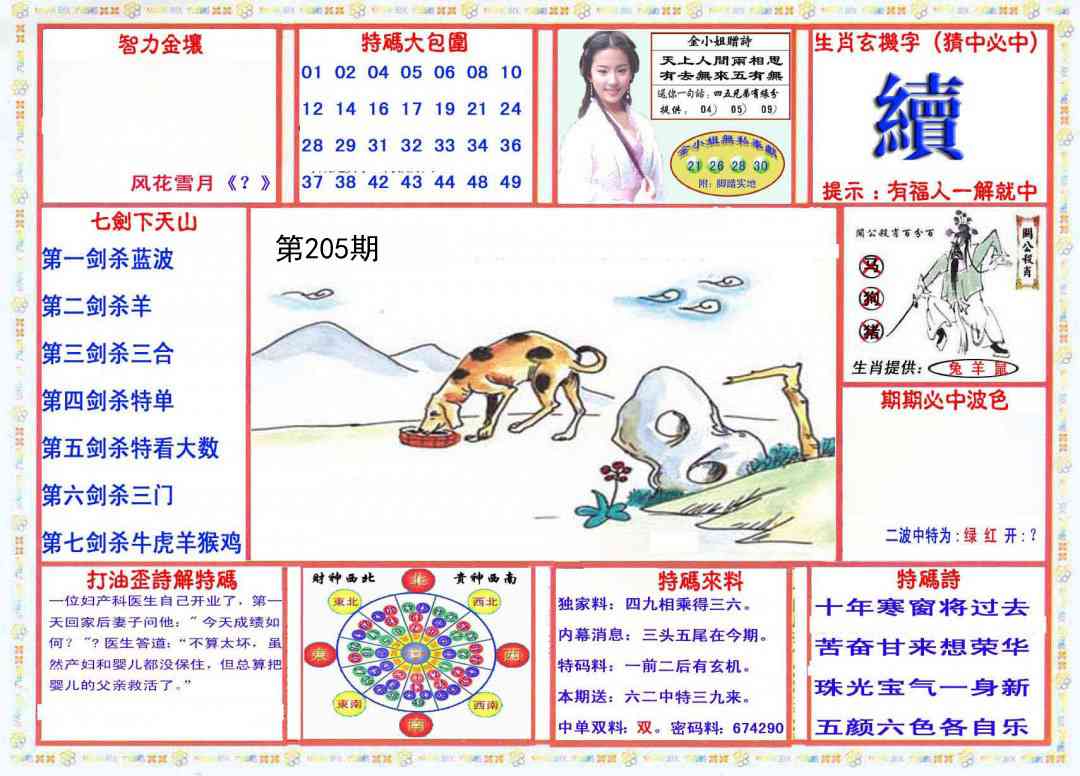 智力金壤
风花雪月《？》
特碼大包圍
01 02 04 05 06 08 10
12 14 16 17 19 21 24
28 29 31 32 33 34 36
37 38 42 43 44 48 49
金小姐赠詩
天上人間兩相思
有去無來五有無
送你一句話：四五兄弟有緣分
提供： 04） 05） 09）
21 26 28 30
附：脚踏实地
生肖玄機字（猜中必中）
續
提示：有福人一解就中
七劍下天山
第一剑杀蓝波
第二剑杀羊
第三剑杀三合
第四剑杀特单
第五剑杀特看大数
第六剑杀三门
第七剑杀牛虎羊猴鸡
第205期
關公殺肖百分百
關公殺肖
马
狗
猪
生肖提供： 兔 羊 鼠
期期必中波色
二波中特为：绿 红 开：？
打油歪詩解特碼
一位妇产科医生自己开业了，第一
天回家后妻子问他：“今天成绩如
何？”？医生答道：“不算太坏，虽
然产妇和婴儿都没保住，但总算把
婴儿的父亲救活了。”
财神西北 贵神西南
北
東北 西北
東 西
東南 西南
南
特碼來料
独家料：四九相乘得三六。
内幕消息：三头五尾在今期。
特码料：一前二后有玄机。
本期送：六二中特三九来。
中单双料：双。密码料：674290
特碼詩
十年寒窗将过去
苦奋甘来想荣华
珠光宝气一身新
五颜六色各自乐